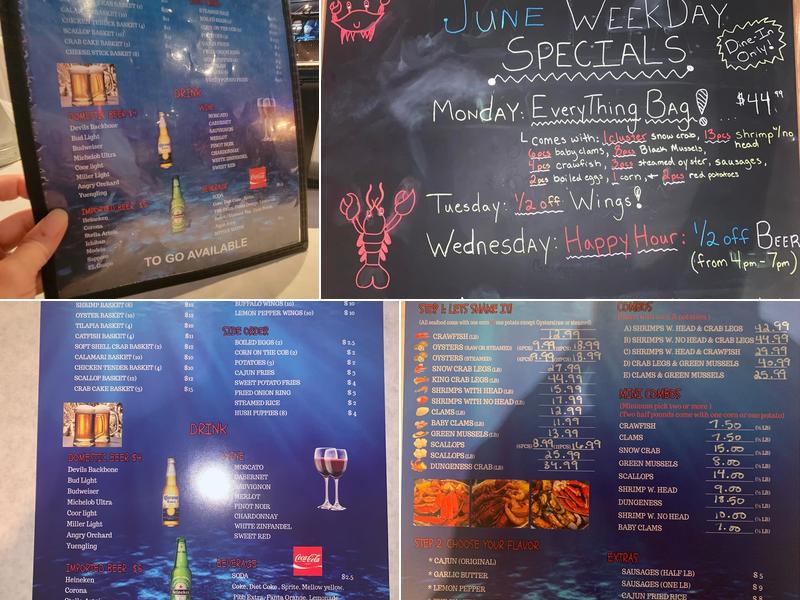 CALAMARI BASKET (10)
CHICKEN TENDER BASKET (4)
SCALLOP BASKET (12)
CRAB CAKE BASKET (3)
CHEESE STICK BASKET (8)
DRINK
DOMESTIC BEER $4
Devils Backbone
Bud Light
Budweiser
Michelob Ultra
Coor Light
Miller Light
Angry Orchard
Yuengling
IMPORTED BEER $5
Heineken
Corona
Stella Artois
Ichiban
Modelo
Sapporo
WINE
MOSCATO
CABERNET
SAUVIGNON
MERLOT
PINOT NOIR
CHARDONNAY
WHITE ZINFANDEL
SWEET RED
BEVERAGE
SODA
Coca-Cola
TO GO AVAILABLE
JUNE WEEKDAY
SPECIALS
Dine-In
Only!
MONDAY: EVERYTHING BAG! ... $44.99
comes with: 1 cluster snow crab, 13pcs shrimp w/no head
6pcs baby clams, 8pcs Black Mussels,
4pcs crawfish, 2pcs steamed oyster, sausages,
2pcs boiled eggs, 1 corn, + 2pcs red potatoes
Tuesday: 1/2 off Wings!
Wednesday: Happy Hour: 1/2 off BEER
(from 4pm-7pm)
SHRIMP BASKET (8)
OYSTER BASKET (10) $12
TILAPIA BASKET (4) $10
CATFISH BASKET (4) $11
SOFT SHELL CRAB BASKET (2) $12
CALAMARI BASKET (10) $12
CHICKEN TENDER BASKET (4) $10
SCALLOP BASKET (12) $12
CRAB CAKE BASKET (3) $15
BUFFALO WINGS (10) $ 10
LEMON PEPPER WINGS (10) $ 10
SIDE ORDER
BOILED EGGS (2) $ 2.5
CORN ON THE COB (2) $ 2
POTATOES (3) $ 2
CAJUN FRIES $ 3
SWEET POTATO FRIES $ 4
FRIED ONION RING $ 5
STEAMED RICE $ 2
HUSH PUPPIES (8) $ 4
DRINK
DOMESTIC BEER $4
Devils Backbone
Bud Light
Budweiser
Michelob Ultra
Coor light
Miller Light
Angry Orchard
Yuengling
IMPORTED BEER $5
Heineken
Corona
Stella Artois
WINE
MOSCATO
CABERNET
SAUVIGNON
MERLOT
PINOT NOIR
CHARDONNAY
WHITE ZINFANDEL
SWEET RED
Coca-Cola
BEVERAGE
SODA $2.5
Coke, Diet Coke , Sprite, Mellow yellow,
Pibb Extra, Fanta Orange, Lemonade
STEP 1: LET'S SHAME IT!
CRAWFISH (LB) 12.99
OYSTERS (RAW OR STEAMED)
OYSTERS (STEAMED)
SNOW CRAB LEGS (LB) 27.99
KING CRAB LEGS (LB) 44.99
SHRIMPS WITH HEAD (LB) 15.99
SHRIMPS WITH NO HEAD (LB) 17.99
CLAMS (LB) 12.99
BABY CLAMS (LB) 11.99
GREEN MUSSELS (LB) 13.99
SCALLOPS (6PCS) 8.99 (12PCS) 16.99
SCALLOPS (LB) 25.99
DUNGENESS CRAB (LB) 34.99
STEP 2. CHOOSE YOUR FLAVOR
* CAJUN (ORIGINAL)
* GARLIC BUTTER
* LEMON PEPPER
COMBOS
A) SHRIMPS W. HEAD & CRAB LEGS 42.99
B) SHRIMPS W. NO HEAD & CRAB LEGS 44.99
C) SHRIMPS W. HEAD & CRAWFISH 29.99
D) CRAB LEGS & GREEN MUSSELS 40.99
E) CLAMS & GREEN MUSSELS 25.99
MINI COMBOS
(Minimum pick two or more )
(Two half pounds come with one corn or one potato)
CRAWFISH 7.50 (½ LB)
CLAMS 7.50 (½ LB)
SNOW CRAB 15.00 (½ LB)
GREEN MUSSELS 8.00 (½ LB)
SCALLOPS 14.00 (½ LB)
SHRIMP W. HEAD 9.00 (½ LB)
DUNGENESS 18.50 (½ LB)
SHRIMP W. NO HEAD 10.00 (½ LB)
BABY CLAMS 7.00 (½ LB)
EXTRAS
SAUSAGES (HALF LB) $ 5
SAUSAGES (ONE LB) $ 9
CAJUN FRIED RICE